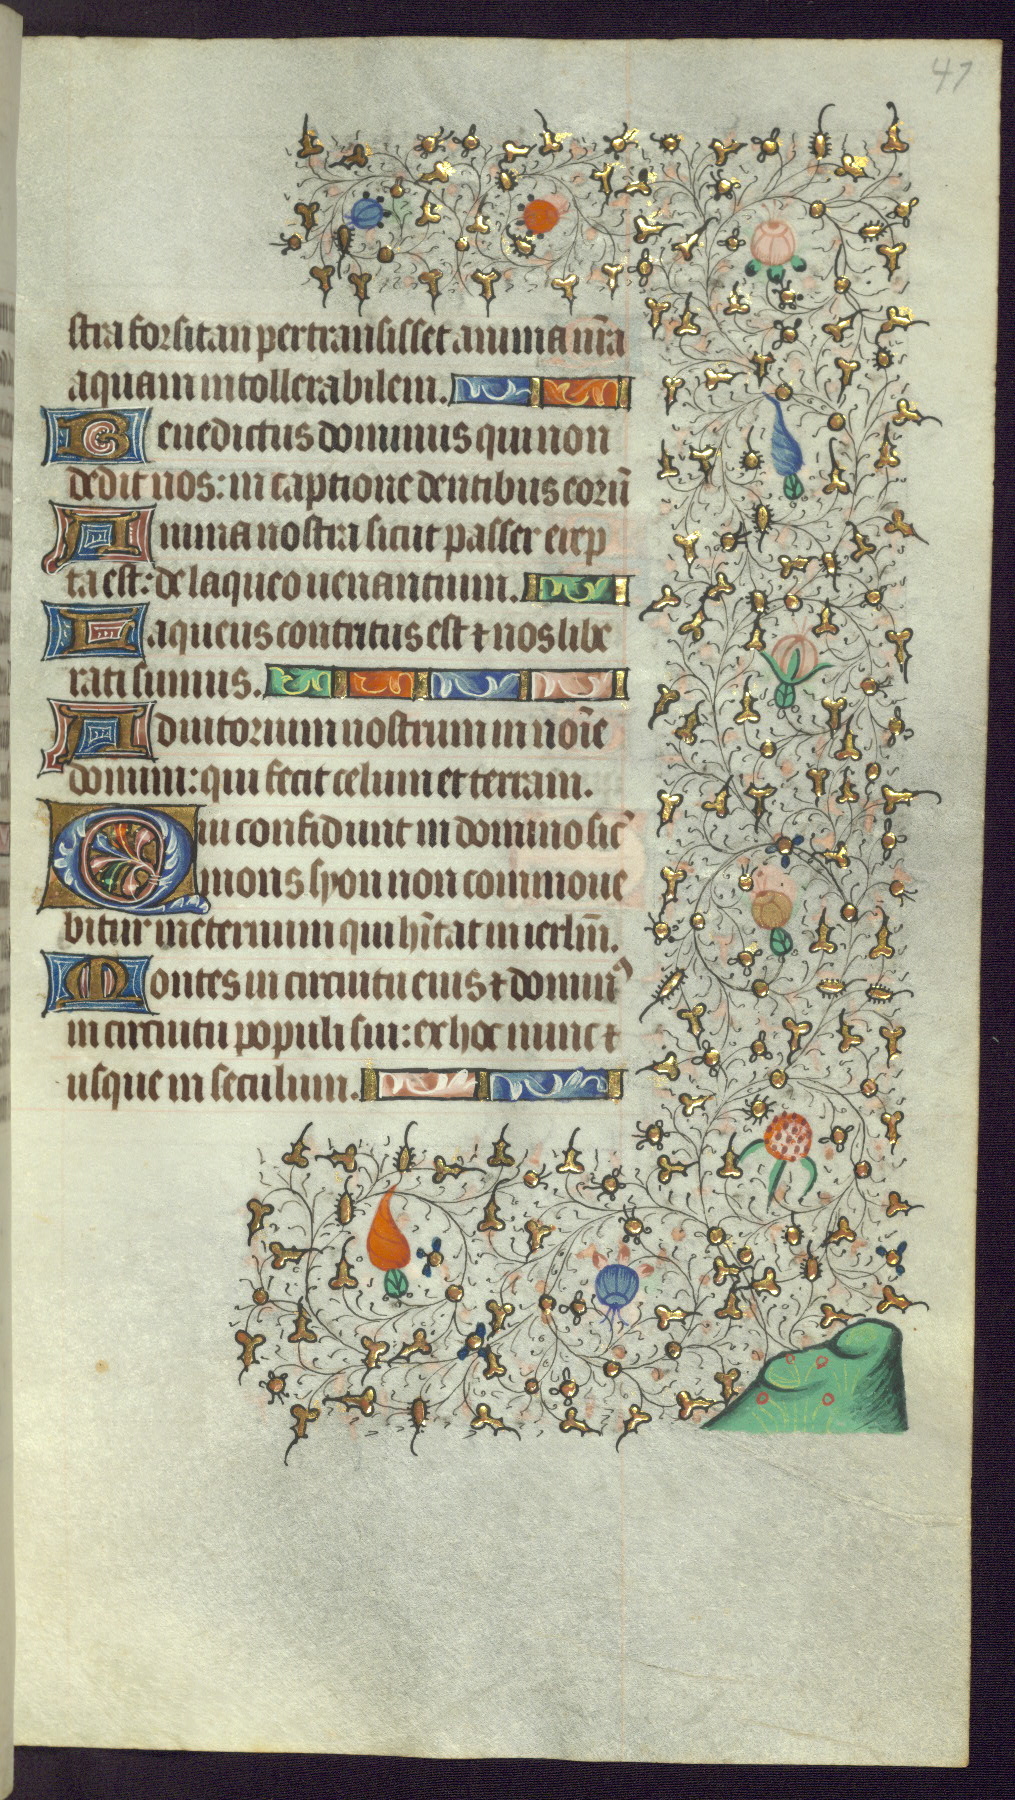 47
stra forsitan pertransisset anima nr̄a
aquam intollerabilem.
Benedictus dominus qui non
dedit nos: in captione dentibus eorū
Anima nostra sicut passer erep
ta est: de laqueo uenantium.
Laqueus contritus est ⁊ nos libe
rati sumus.
Adiutorium nostrum in noīe
domini: qui fecit celum et terram.
Qui confidunt in domino sic̄
mons syon non commoue
bitur in eternum qui hītat in ierlm̄.
Montes in circuitu eius ⁊ dominꝰ
in circuitu populi sui: ex hoc nunc ⁊
usque in seculum.